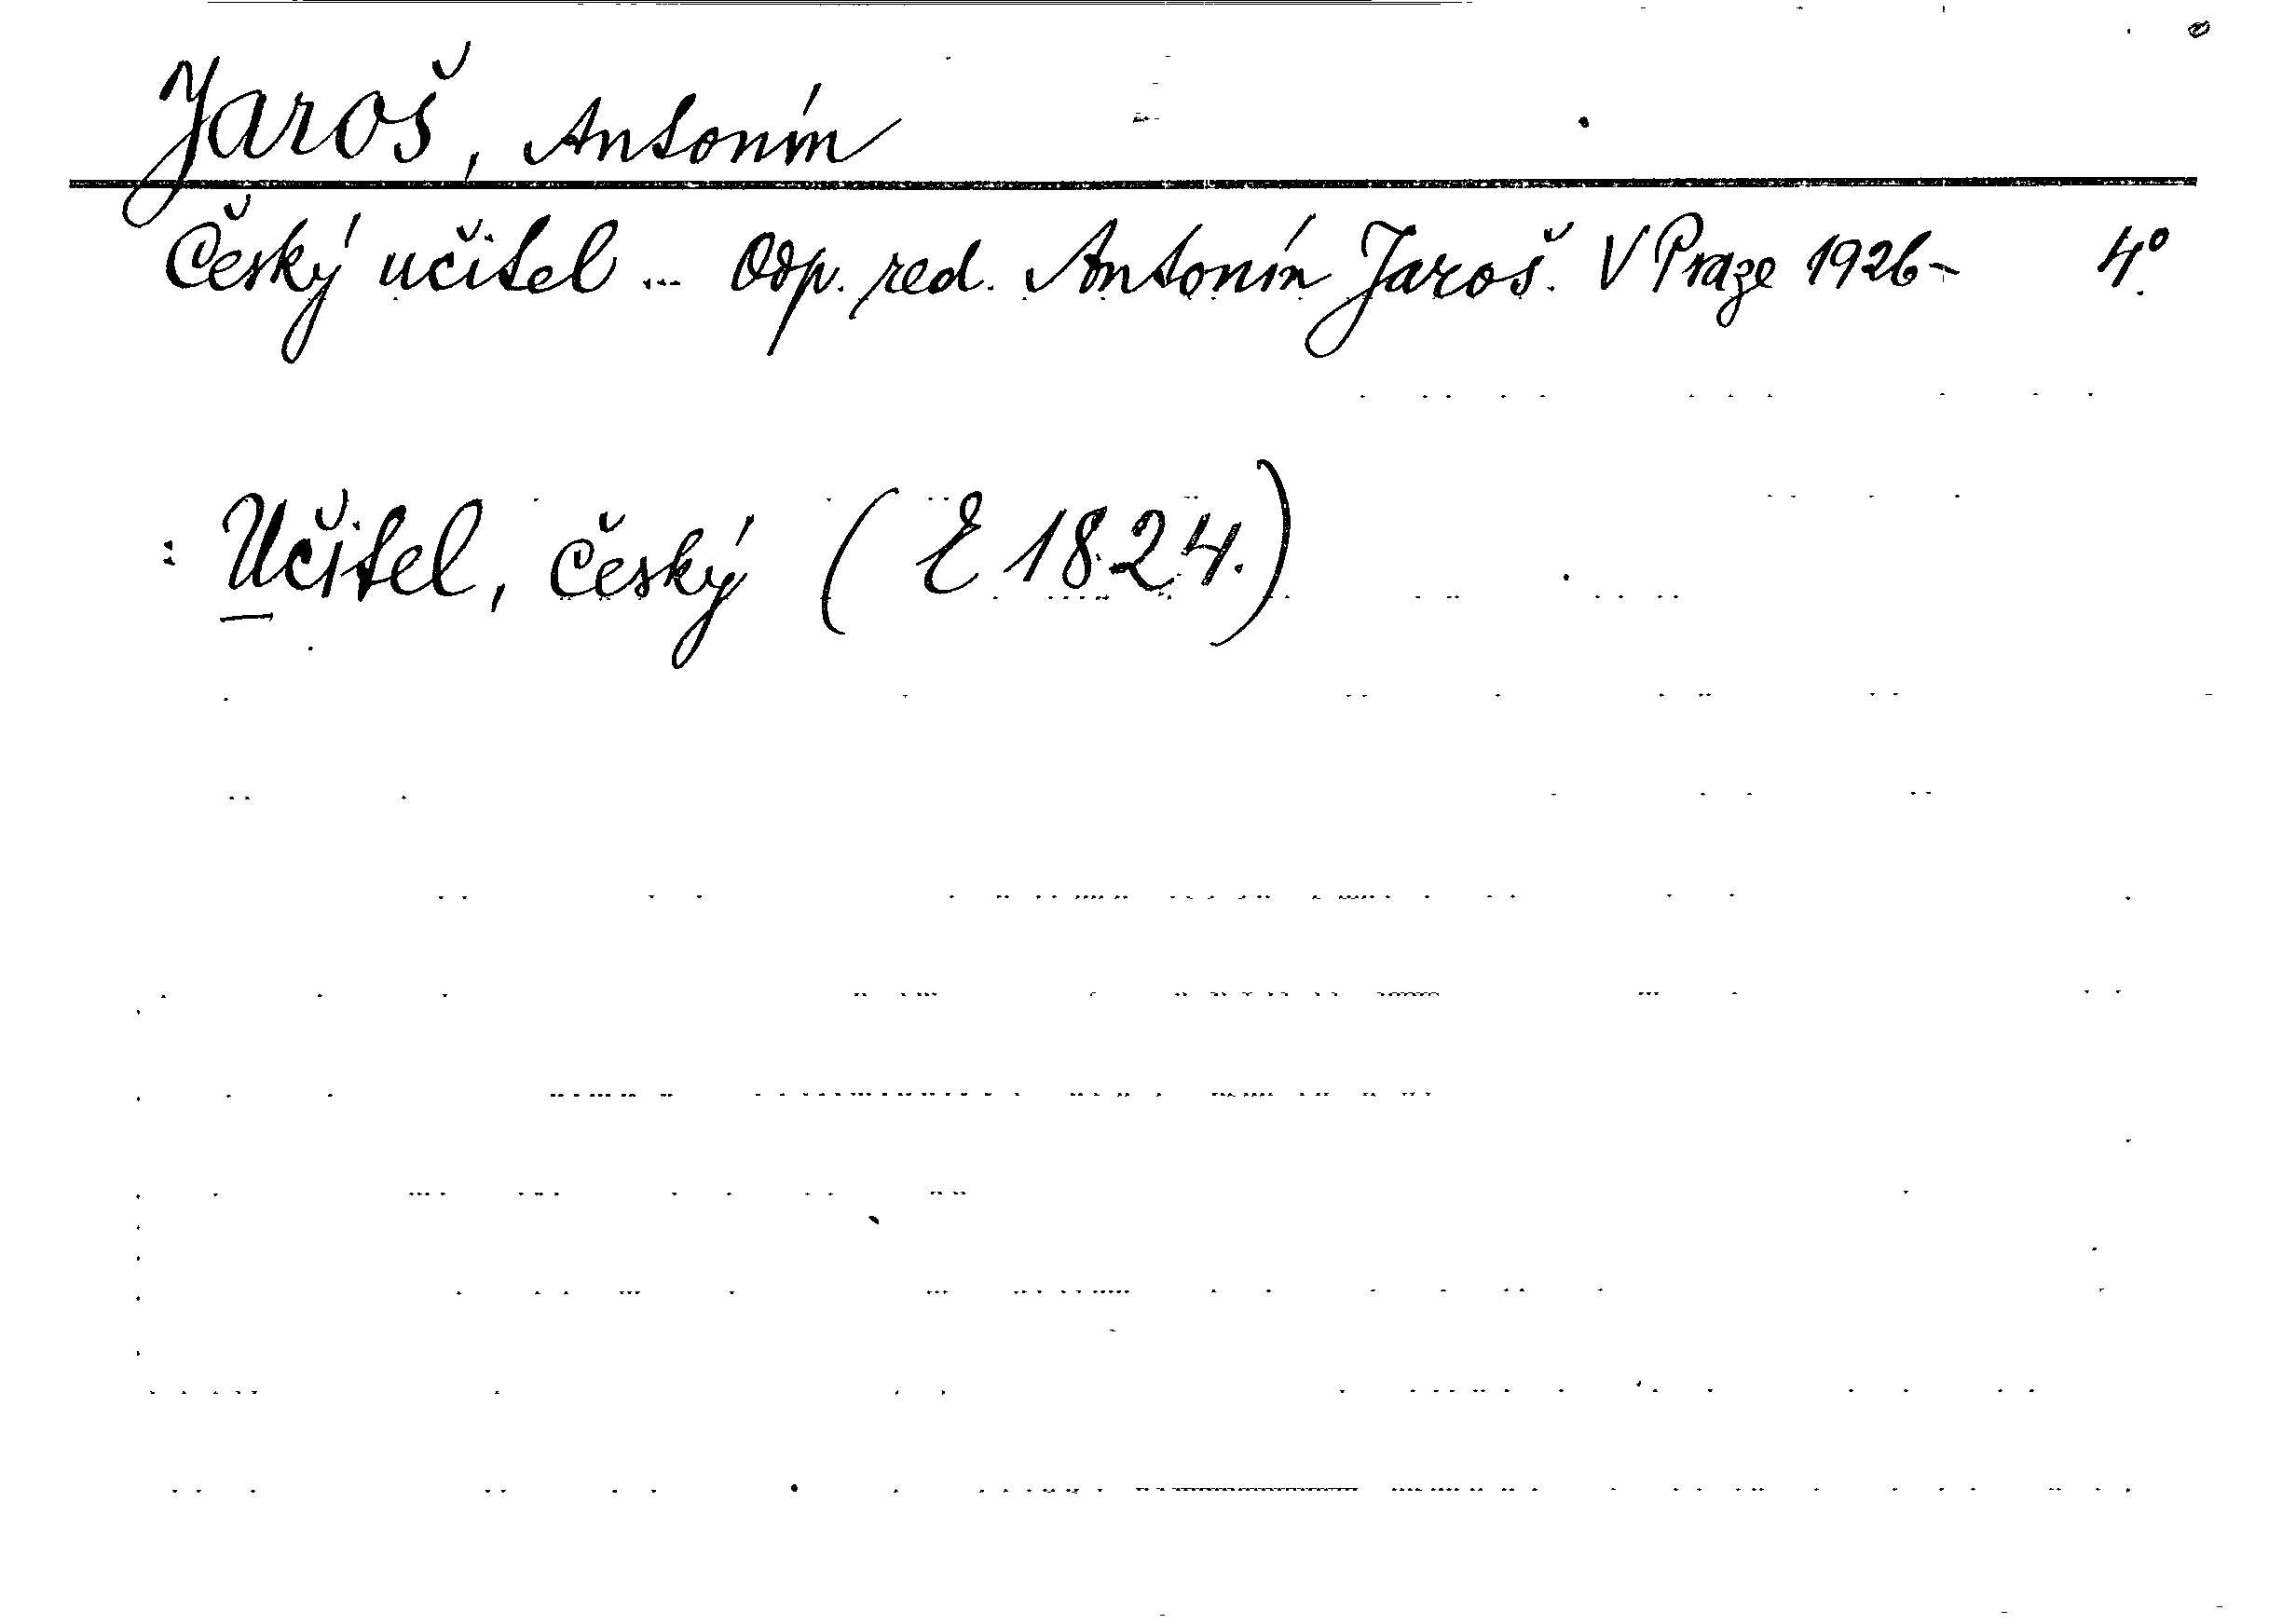 Jaroš, Antonín
Český učitel ... Odp. red. Antonín Jaroš. V Praze 1926- 4°.
: Učitel, český (E 1824.)